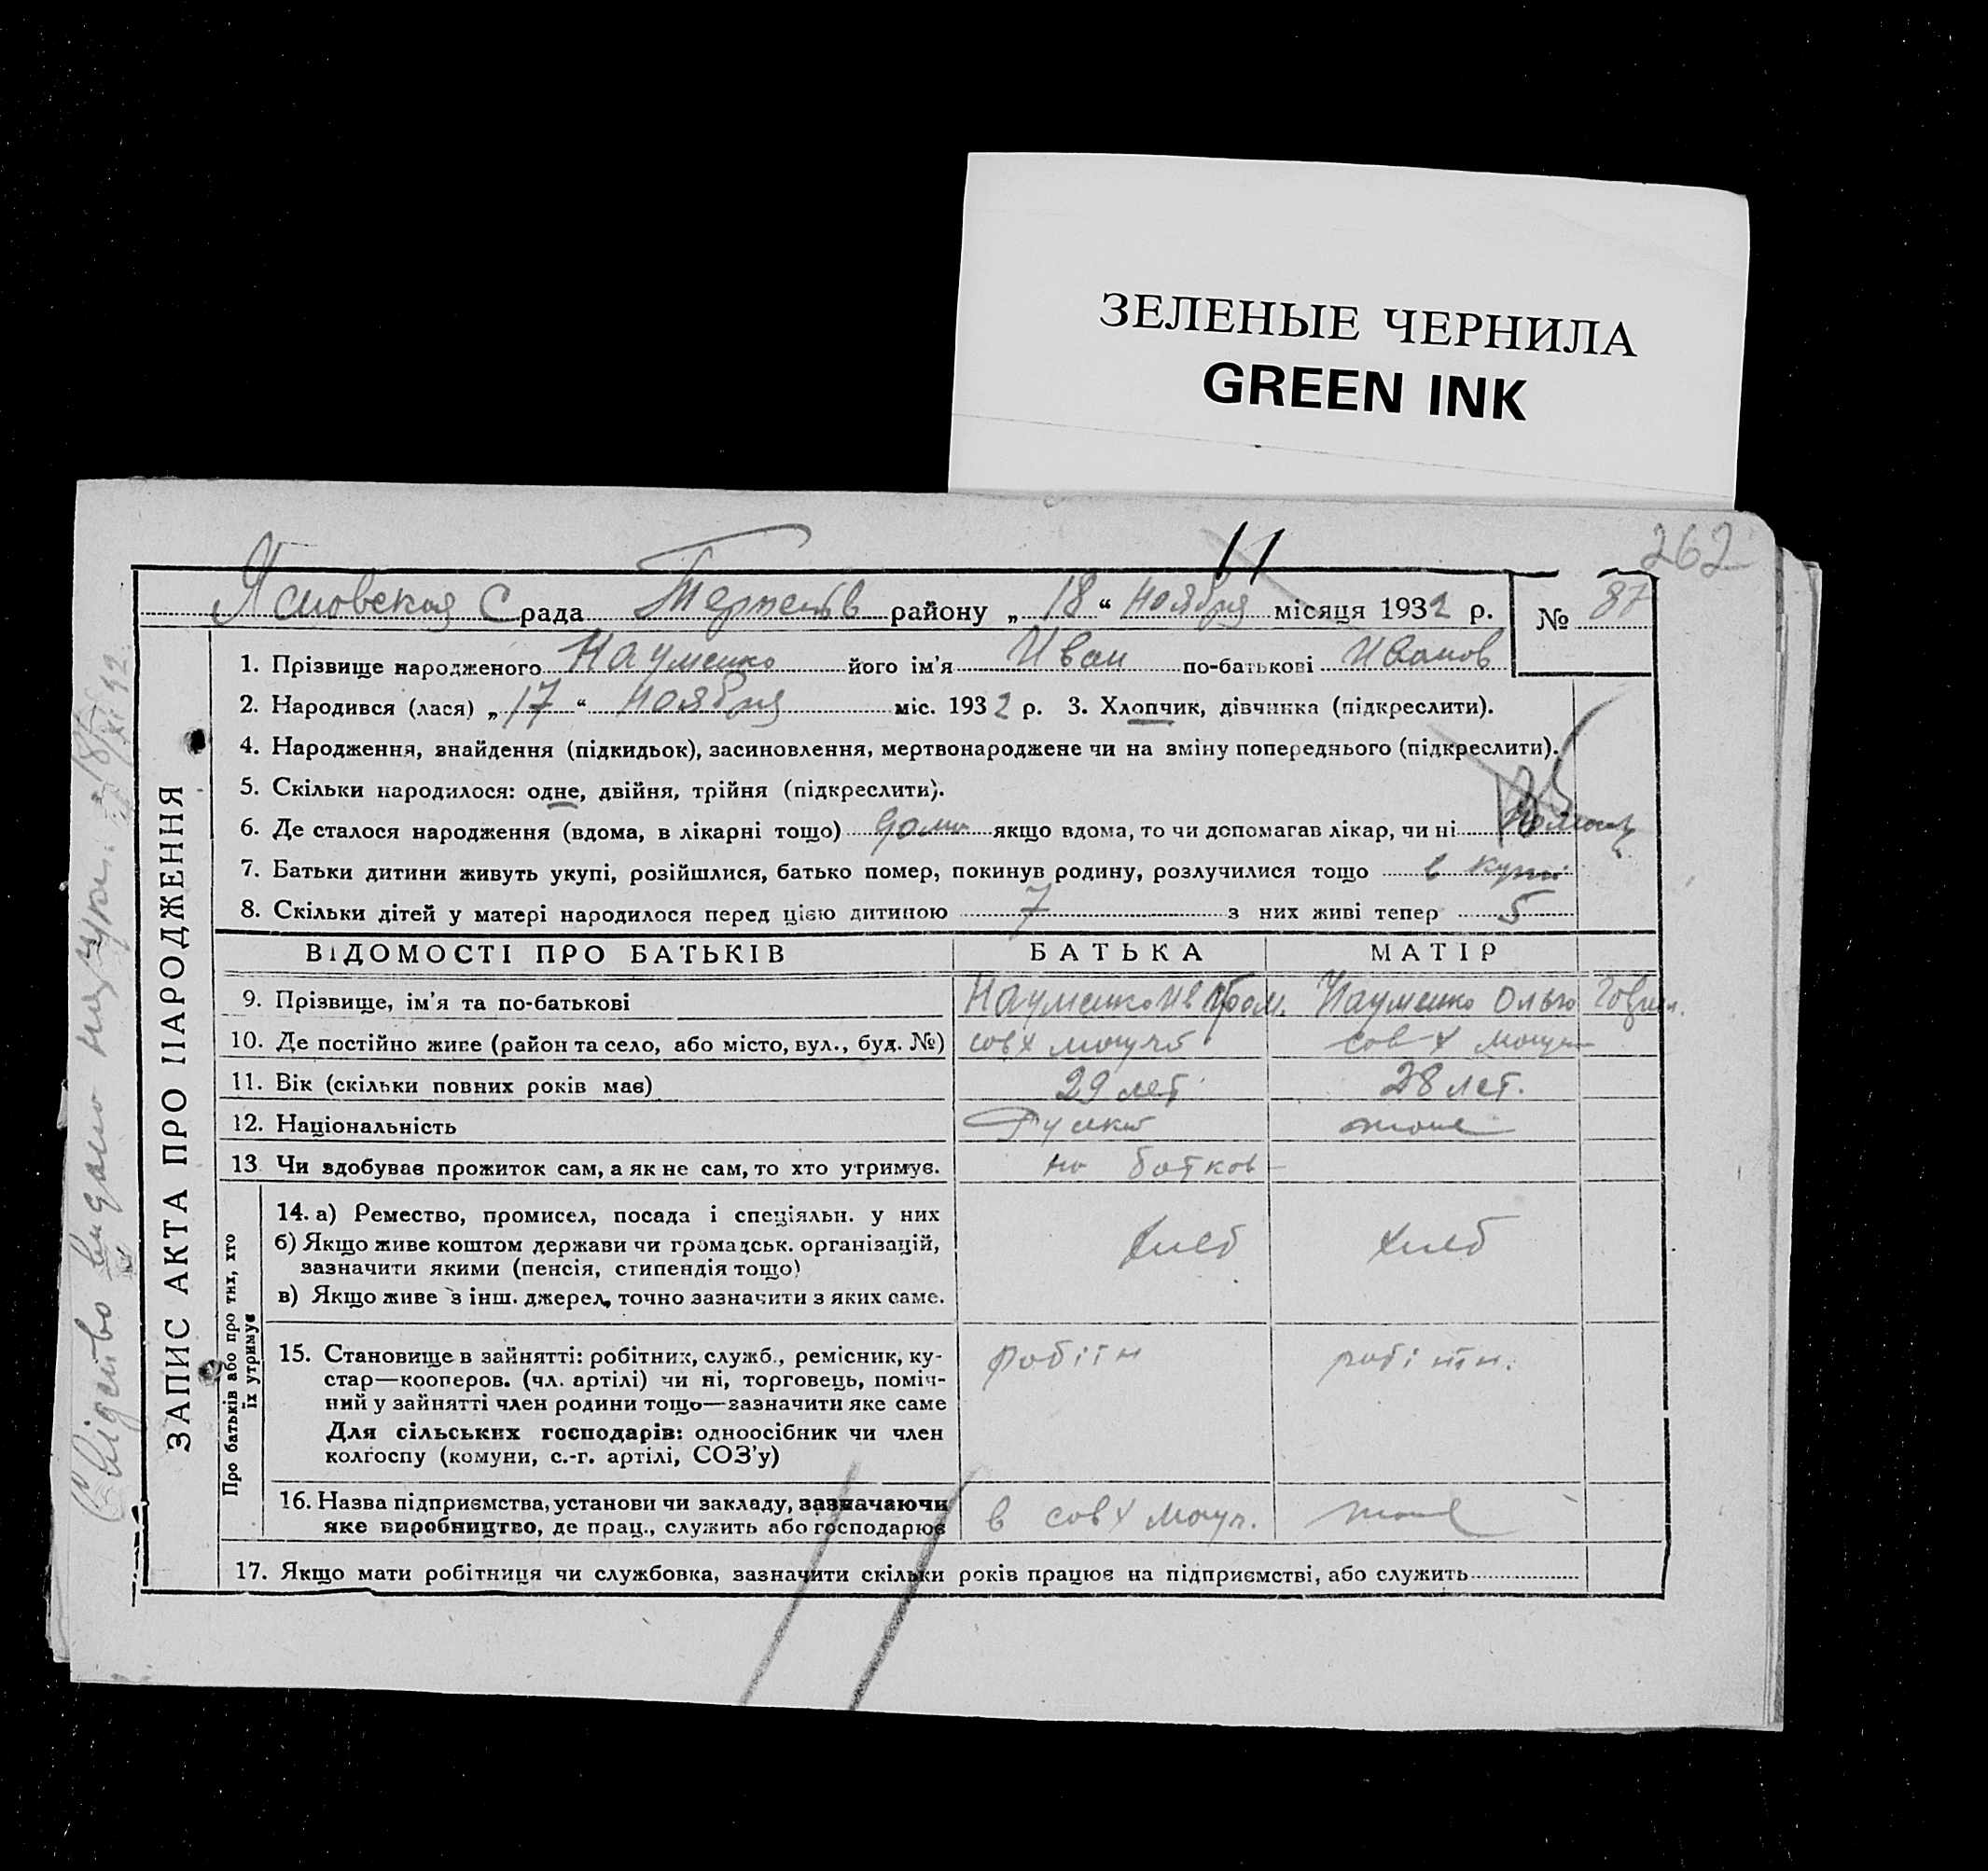 ЗЕЛЕНЫЕ ЧЕРНИЛА
GREEN INK
262
11
рада районну „ 18 “ ноября місяця 1932 р. № 87
1. Прізвище народженого Науменко його ім'я Иван по-батькові Иванов
2. Народився (лася) „ 17 “ ноября міс. 1932 р. 3. Хлопчик, дівчинка (підкреслити).
4. Народження, знайдення (підкидьок), засиновлення, мертвонароджене чи на зміну попереднього (підкреслити).
5. Скільки народилося: одне, двійня, трійня (підкреслити).
6. Де сталося народження (вдома, в лікарні тощо) дома якщо вдома, то чи допомагав лікар, чи ні
7. Батьки дитини живуть укупі, розійшлися, батько помер, покинув родину, розлучилися тощо в купі
8. Скільки дітей у матері народилося перед цією дитиною 7 з них живі тепер 5
ВІДОМОСТІ ПРО БАТЬКІВ БАТЬКА МАТІР
9. Прізвище, ім'я та по-батькові Науменко Ив Науменко Ольга
10. Де постійно живе (район та село, або місто, вул., буд. №) совх совх
11. Вік (скільки повних років має) 29 лет 28 лет.
12. Національність тоже
13 Чи здобував прожиток сам, а як не сам, то хто утримує.
14. а) Ремество, промисел, посада і спеціяльн. у них
б) Якщо живе коштом держави чи громадськ. організацій,
зазначити якими (пенсія, стипендія тощо) хлеб хлеб
в) Якщо живе з інш. джерел, точно зазначити з яких саме.
15. Становище в зайнятті: робітник, служб., ремісник, ку-
стар—кооперов. (чл. артілі) чи ні, торговець, поміч- робітн робітн.
ний у зайнятті член родини тощо—зазначити яке саме
Для сільських господарів: одноосібник чи член
колгоспу (комуни, с.-г. артілі, СОЗ'у)
16. Назва підприємства, установи чи закладу, зазначаючи
яке виробництво, де прац., служить або господарює в совх тоже
17. Якщо мати робітниця чи службовка, зазначити скільки років працює на підприємстві, або служить
ЗАПИС АКТА ПРО НАРОДЖЕННЯ
Про батьків або про тих, хто
їх утримує
Свідоцтво видано на руки